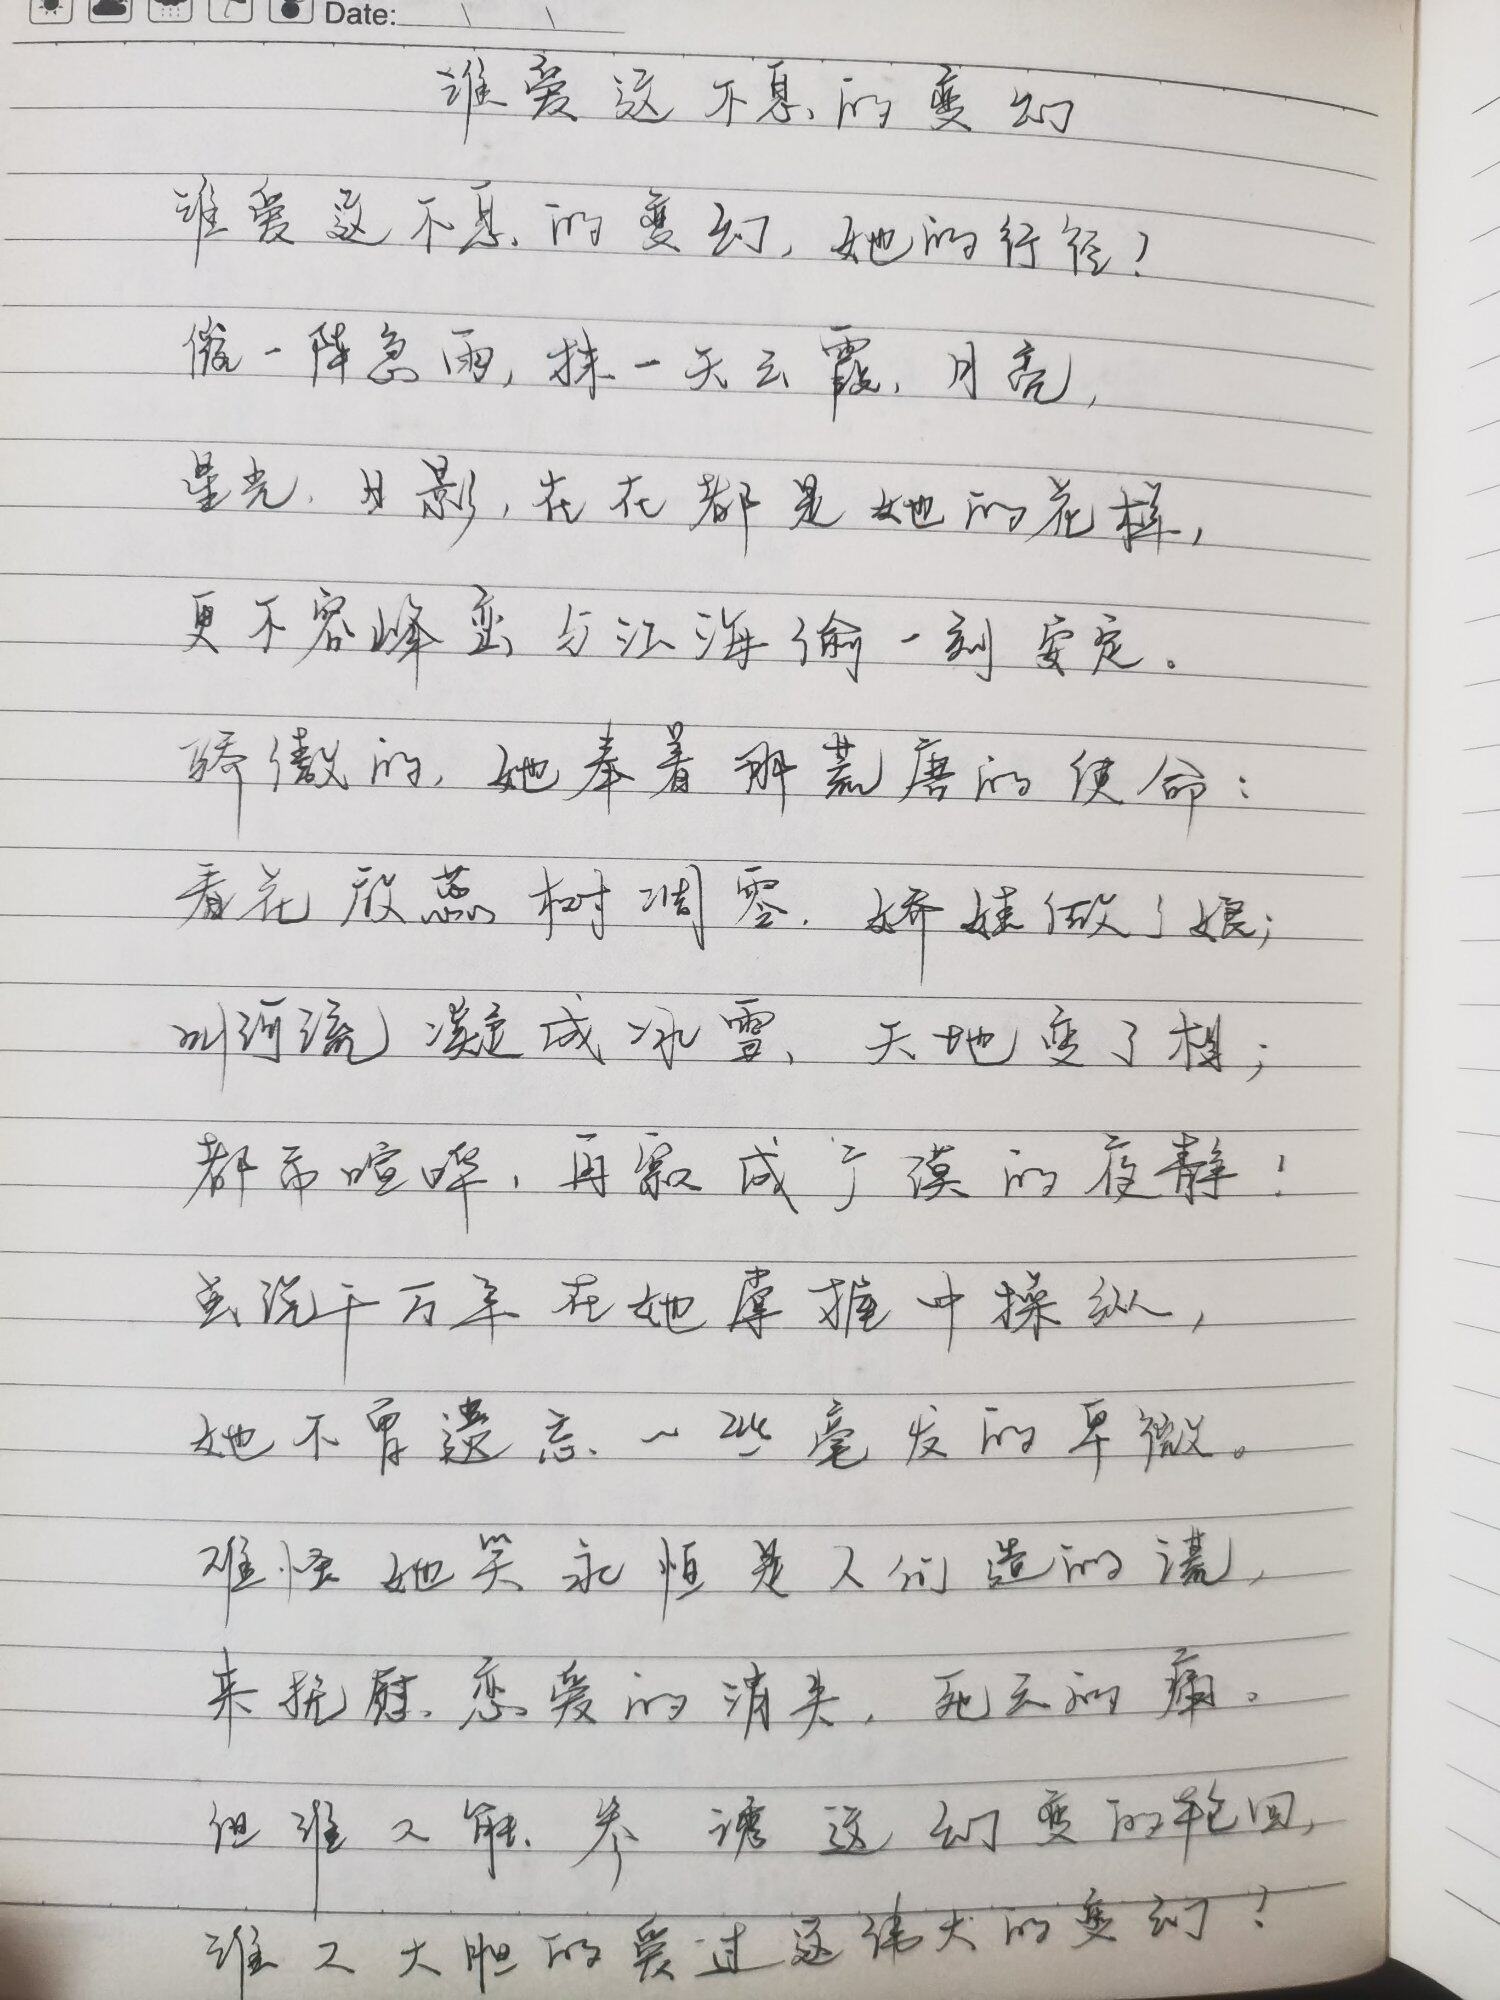 Date:
谁爱这不息的变幻
谁爱这不息的变幻,她的行径?
催一阵急雨,抹一天云霞,月亮,
星光,日影,在在都是她的花样,
更不容峰峦与江海偷一刻安定。
骄傲的,她奉着那荒唐的使命:
看花放蕊树凋零,娇娃做了娘;
叫河流凝成冰雪,天地变了相;
都市喧哗,再寂成广漠的夜静!
虽说千万年在她掌握中操纵,
她不曾遗忘一丝毫发的卑微。
难怪她笑永恒是人们造的谎,
来抚慰恋爱的消失,死亡的痛。
但谁又能参透这幻变的轮回,
谁又大胆的爱过这伟大的变幻?